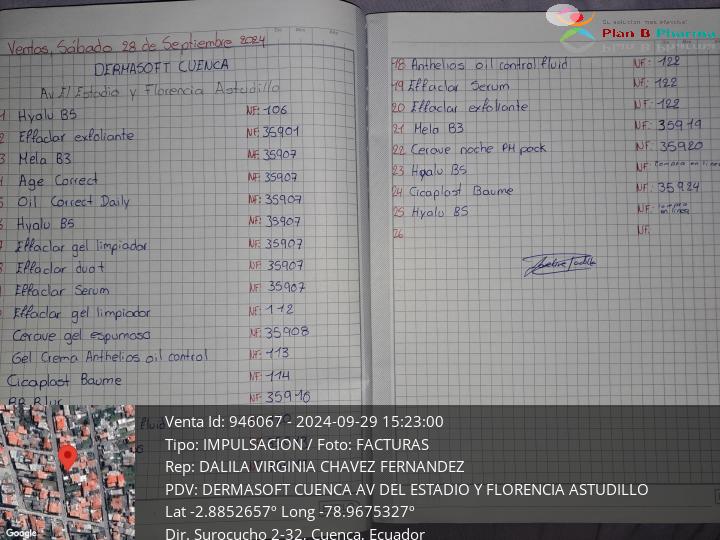 Ventas, Sábado 28 de Septiembre 2024
DERMASOFT CUENCA
Av El Estadio y Florencia Astudillo
1 Hyalu B5 NF: 106
2 Effaclar exfoliante NF: 35901
3 Mela B3 NF: 35907
Age Correct NF: 35907
Oil Correct Daily NF: 35907
Hyalu B5 NF: 35907
Effaclar gel limpiador NF: 35907
Effaclar duo+ NF: 35907
Effaclar Serum NF: 35907
Effaclar gel limpiador NF: 112
Cerave gel espumoso NF: 35908
Gel Crema Anthelios oil control NF: 113
Cicaplast Baume NF: 114
BB Blur NF: 35910
fluid
18 Anthelios oil control fluid NF: 122
19 Effaclar Serum NF: 122
20 Effaclar exfoliante NF: 122
21 Mela B3 NF: 35919
22 Cerave noche PM pack NF: 35920
23 Hyalu B5 NF: compra en linea
24 Cicaplast Baume NF: 35924
25 Hyalu B5 NF: compra en linea
26 NF:
Su solución más efectiva!
Plan B Pharma
Venta Id: 946067 - 2024-09-29 15:23:00
Tipo: IMPULSACION / Foto: FACTURAS
Rep: DALILA VIRGINIA CHAVEZ FERNANDEZ
PDV: DERMASOFT CUENCA AV DEL ESTADIO Y FLORENCIA ASTUDILLO
Lat -2.8852657º Long -78.9675327º
Dir. Surocucho 2-32, Cuenca, Ecuador
Google